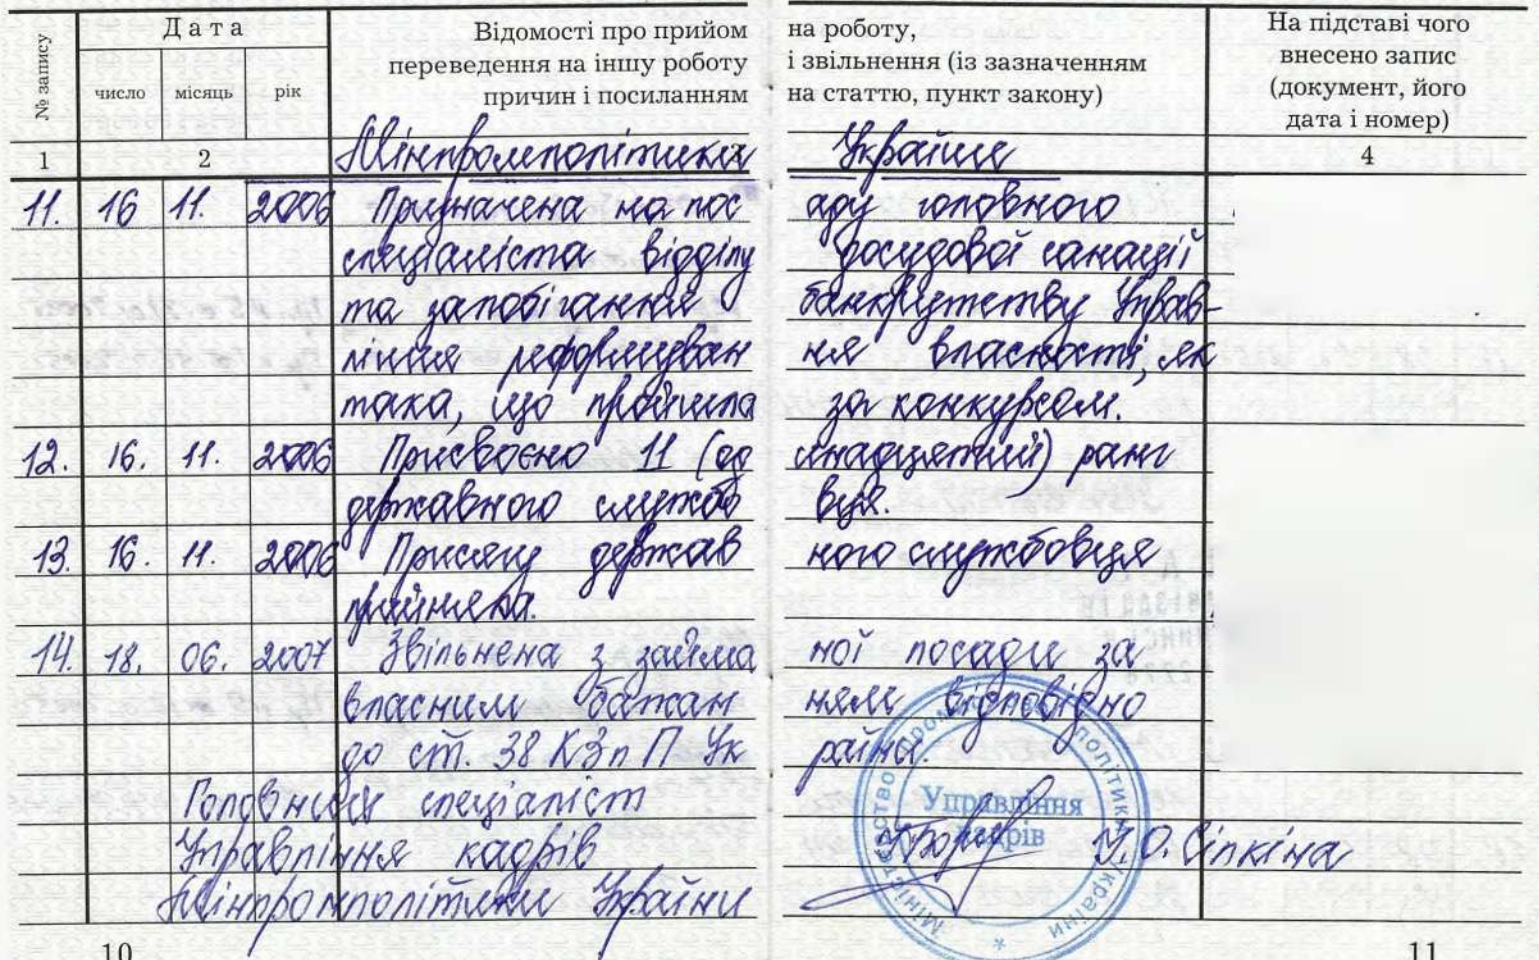 № запису
Дата
число місяць рік
Відомості про прийом на роботу,
переведення на іншу роботу і звільнення (із зазначенням
причин і посиланням на статтю, пункт закону)
На підставі чого
внесено запис
(документ, його
дата і номер)
1 2 3 4
Мінпромполітики України
11. 16 11. 2006 Призначена на посаду головного
спеціаліста відділу досудової санації
та запобігання банкрутству Управ-
ління реформування власності, як
така, що пройшла за конкурсом.
12. 16. 11. 2006 Присвоєно 11 (одинадцятий) ранг
державного службовця.
13. 16. 11. 2006 Присягу державного службовця
прийняла.
14. 18. 06. 2007 Звільнена з займаної посади за
власним бажанням відповідно
до ст. 38 КЗпП України.
Головний спеціаліст
Управління кадрів
Мінпромполітики України
І.О. Сілкіна
Міністерство промислової політики України
Управління
кадрів
10 11